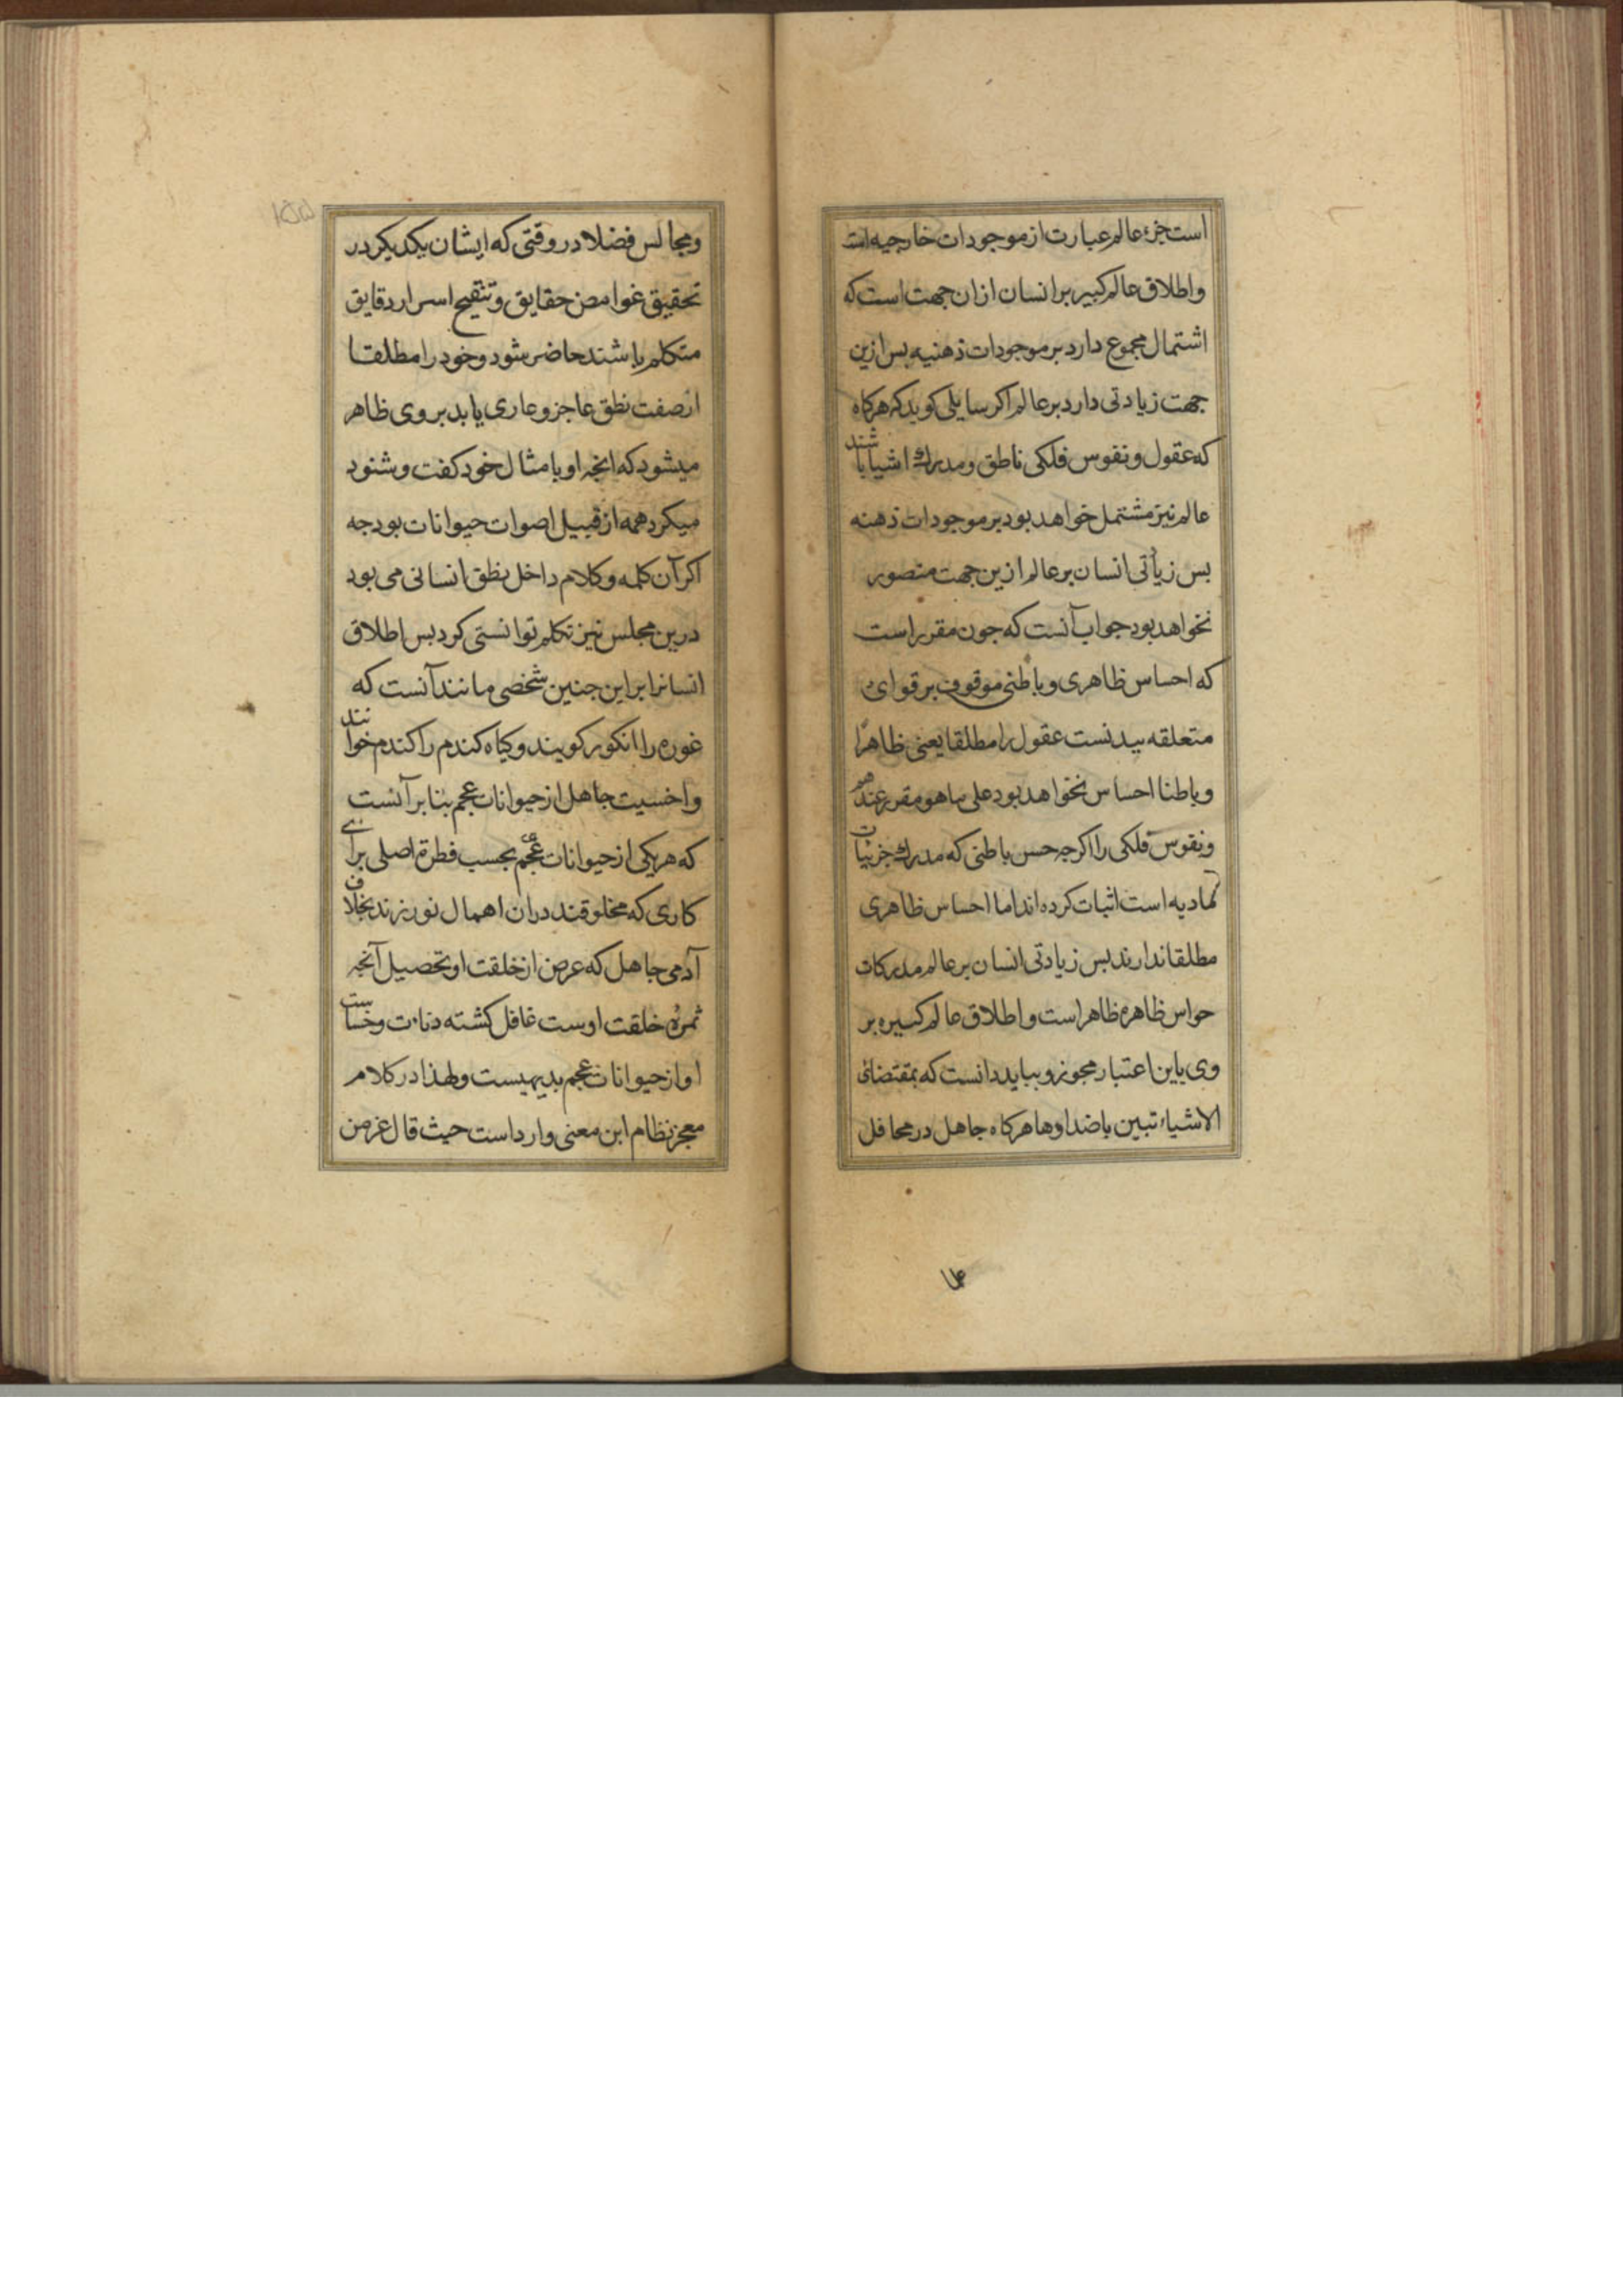 است جزء عالم عبارت از موجودات خارجیه است
واطلاق عالم کبیر بر انسان ازان جهت است که
اشتمال مجموع دارد بر موجودات ذهنیه بس ازین
جهت زیادتی دارد بر عالم اکر سایلی کوید که هرکاه
که عقول ونفوس فلکی ناطق ومدرك اشیا باشند
عالم نیز مشتمل خواهد بود بر موجودات ذهنه
بس زیأتی انسان بر عالم ازین جهت متصور
نخواهد بود جواب آنست که جون مقرر است
که احساس ظاهری و باطنی موقوف بر قوای
متعلقه ببدنست عقول را مطلقا یعنی ظاهرًا
وباطنا احساس نخواهد بود علی ما هو مقرر عندهم
ونفوس فلکی را اکرجه حس باطنی که مدرك جزئیات
مادیه است اثبات کرده اند اما احساس ظاهری
مطلقا ندارند بس زیادتی انسان بر عالم مدرکات
حواس ظاهره ظاهر است واطلاق عالم کبیره بر
وی باین اعتبار مجوز وبباید دانست که بمقتضای
الاشیاء تبین باضدادها هرکاه جاهل در محافل
۱۵۵
ومجالس فضلا در وقتی که ایشان یکدیکر در
تحقیق غوامض حقایق وتنقیح اسرار دقایق
متکلم باشند حاضر شود وخود را مطلقا
از صفت نطق عاجز وعاری یابد بر وی ظاهر
میشود که انجه او با مثال خود کفت وشنود
میکرد همه از قبیل اصوات حیوانات بود جه
اکر آن کلمه وکلام داخل نطق انسانی می بود
درین مجلس نیز تکلم توانستی کرد بس اطلاق
انسانرا بر این جنین شخصی مانند آنست که
غوره را انکور کویند وکیاه کندم را کندم خوانند
واخسیت جاهل از حیوانات عجم بنا بر آنست
که هریکی از حیوانات عجم بحسب فطرة اصلی برای
کاری که مخلوقند دران اهمال نورزند بخلاف
آدمی جاهل که عرض از خلقت او تحصیل آنجه
ثمرۀ خلقت اوست غافل کشته دنائت وخساست
او از حیوانات عجم بدیهیست ولهذا در کلام
معجز نظام این معنی وارد است حیث قال عز من